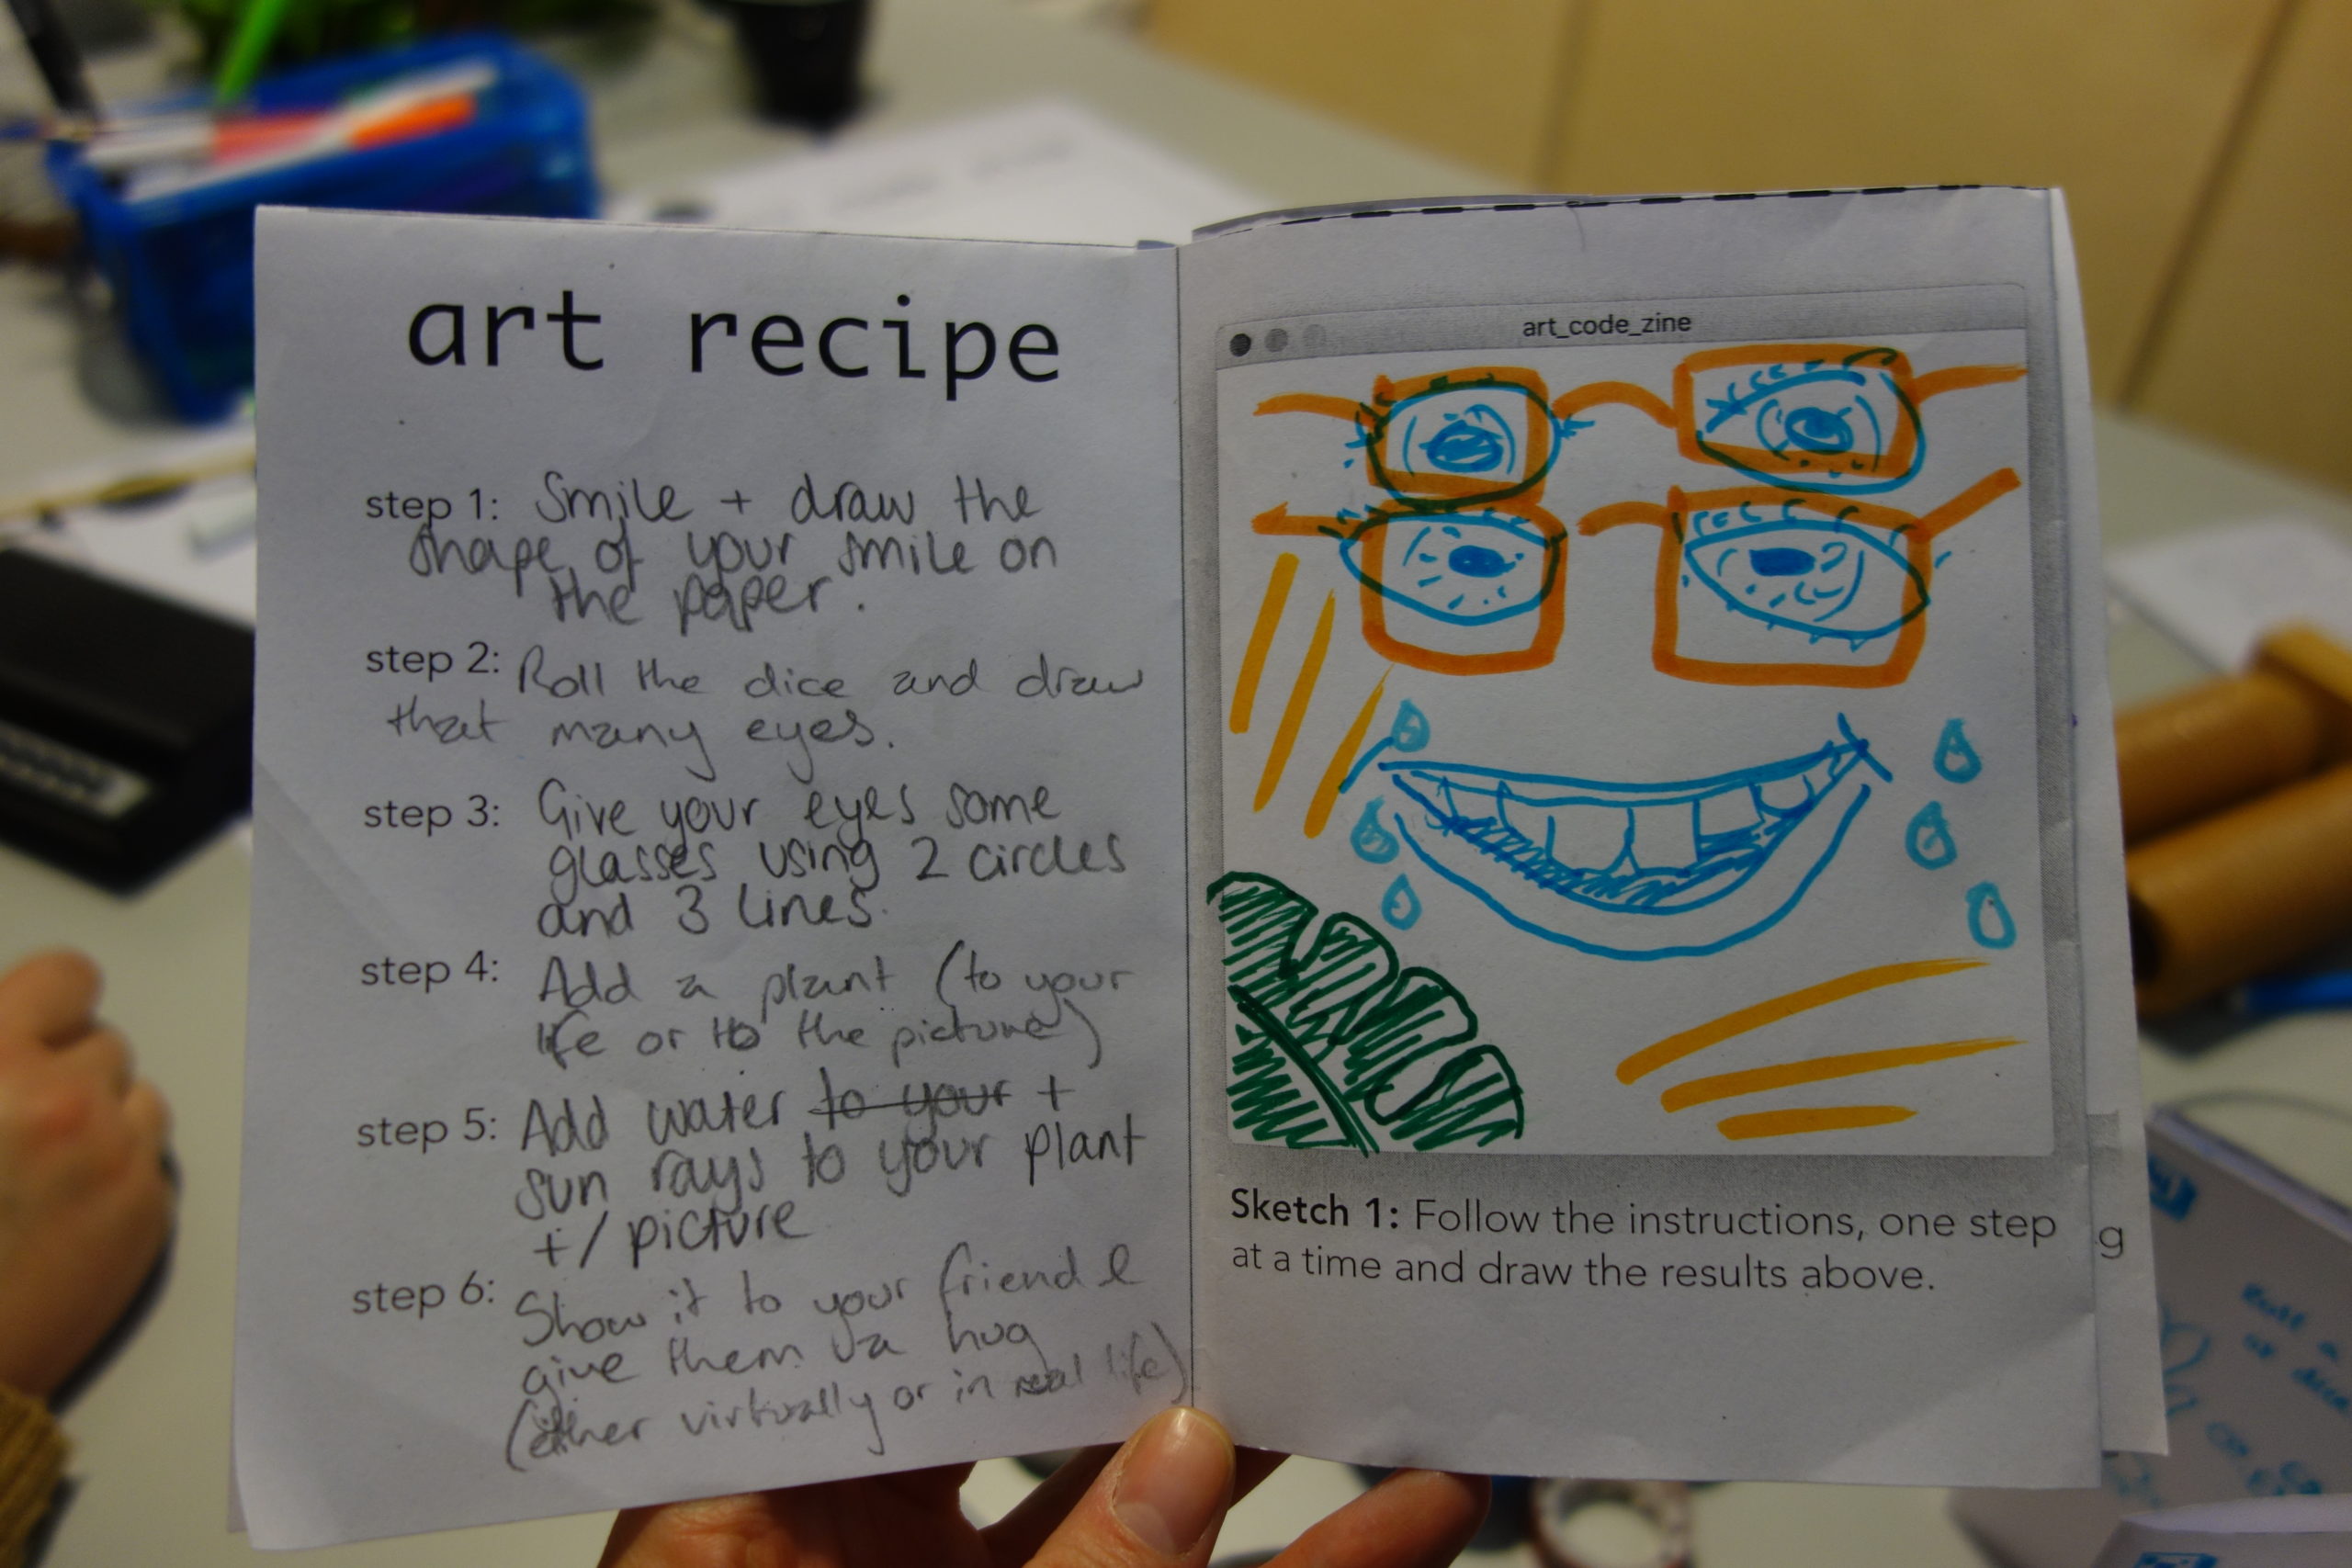 art recipe
step 1: Smile + draw the
shape of your smile on
the paper.
step 2: Roll the dice and draw
that many eyes.
step 3: Give your eyes some
glasses using 2 circles
and 3 lines.
step 4: Add a plant (to your
life or to the picture)
step 5: Add water to your +
sun rays to your plant
+/ picture
step 6: Show it to your friend &
give them a hug
(either virtually or in real life)
art_code_zine
Sketch 1: Follow the instructions, one step
at a time and draw the results above.
g